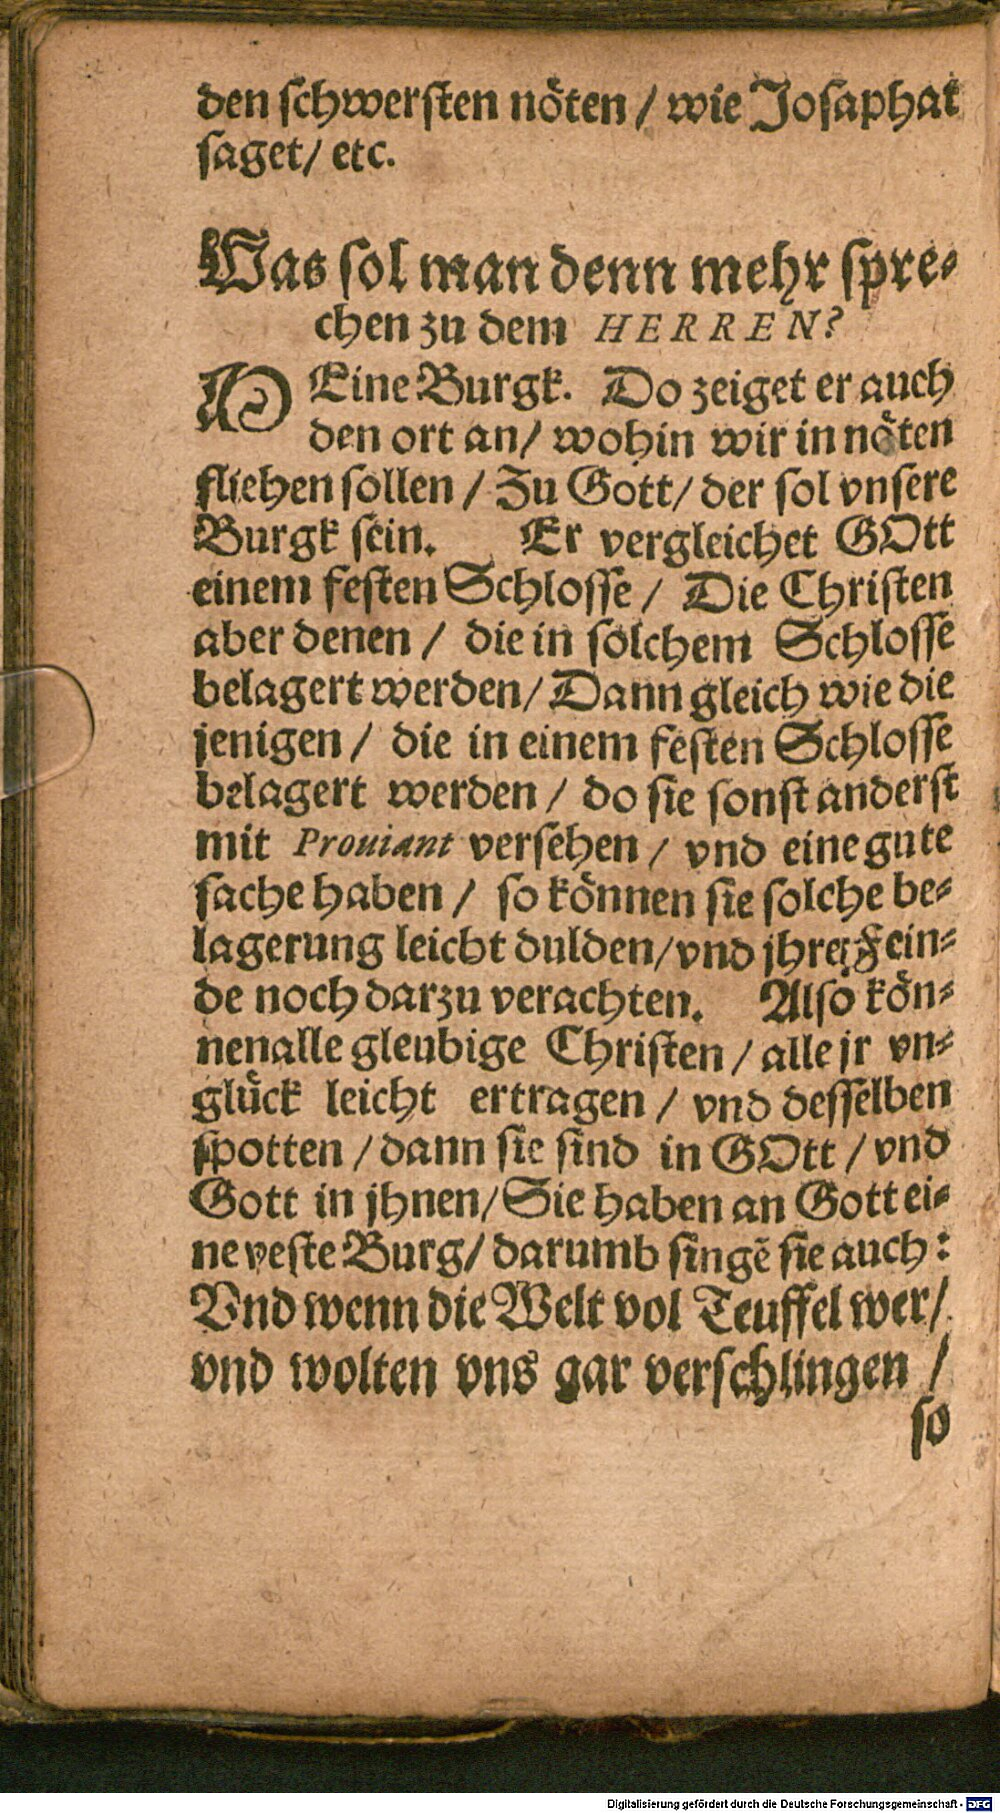 den schwersten nöten / wie Josaphat
saget / etc.
Was sol man denn mehr spre⸗
chen zu dem HERREN?
MEine Burgk. Do zeiget er auch
den ort an / wohin wir in nöten
fliehen sollen / Zu Gott / der sol vnsere
Burgk sein. Er vergleichet GOtt
einem festen Schlosse / Die Christen
aber denen / die in solchem Schlosse
belagert werden / Dann gleich wie die
jenigen / die in einem festen Schlosse
belagert werden / do sie sonst anderst
mit Prouiant versehen / vnd eine gute
sache haben / so können sie solche be⸗
lagerung leicht dulden / vnd jhre Fein⸗
de noch darzu verachten. Also kön⸗
nen alle gleubige Christen / alle jr vn⸗
glück leicht ertragen / vnd desselben
spotten / dann sie sind in GOtt / vnd
Gott in jhnen / Sie haben an Gott ei⸗
ne veste Burg / darumb singē sie auch:
Vnd wenn die Welt vol Teuffel wer /
vnd wolten vns gar verschlingen /
so
Digitalisierung gefördert durch die Deutsche Forschungsgemeinschaft - DFG